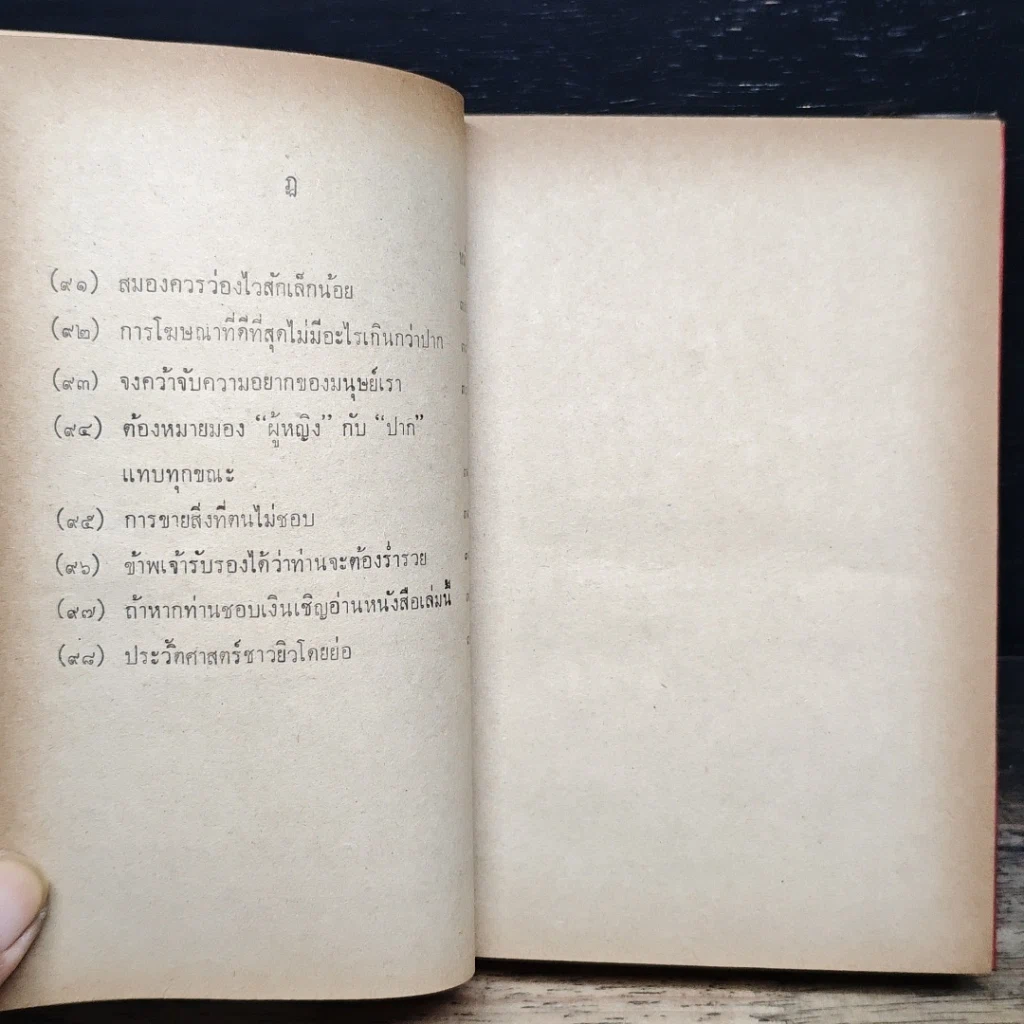 ฎ
(๙๑) สมองควรว่องไวสักเล็กน้อย
(๙๒) การโฆษณาที่ดีที่สุดไม่มีอะไรเกินกว่าปาก
(๙๓) จงคว้าจับความอยากของมนุษย์เรา
(๙๔) ต้องหมายมอง “ผู้หญิง” กับ “ปาก”
แทบทุกขณะ
(๙๕) การขายสิ่งที่ตนไม่ชอบ
(๙๖) ข้าพเจ้ารับรองได้ว่าท่านจะต้องร่ำรวย
(๙๗) ถ้าหากท่านชอบเงินเชิญอ่านหนังสือเล่มนี้
(๙๘) ประวัติศาสตร์ชาวยิวโดยย่อ